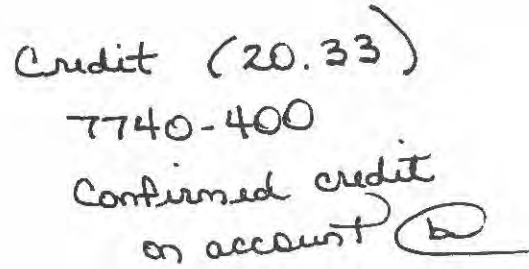 Credit (20.33)
7740-400
Confirmed credit
on account